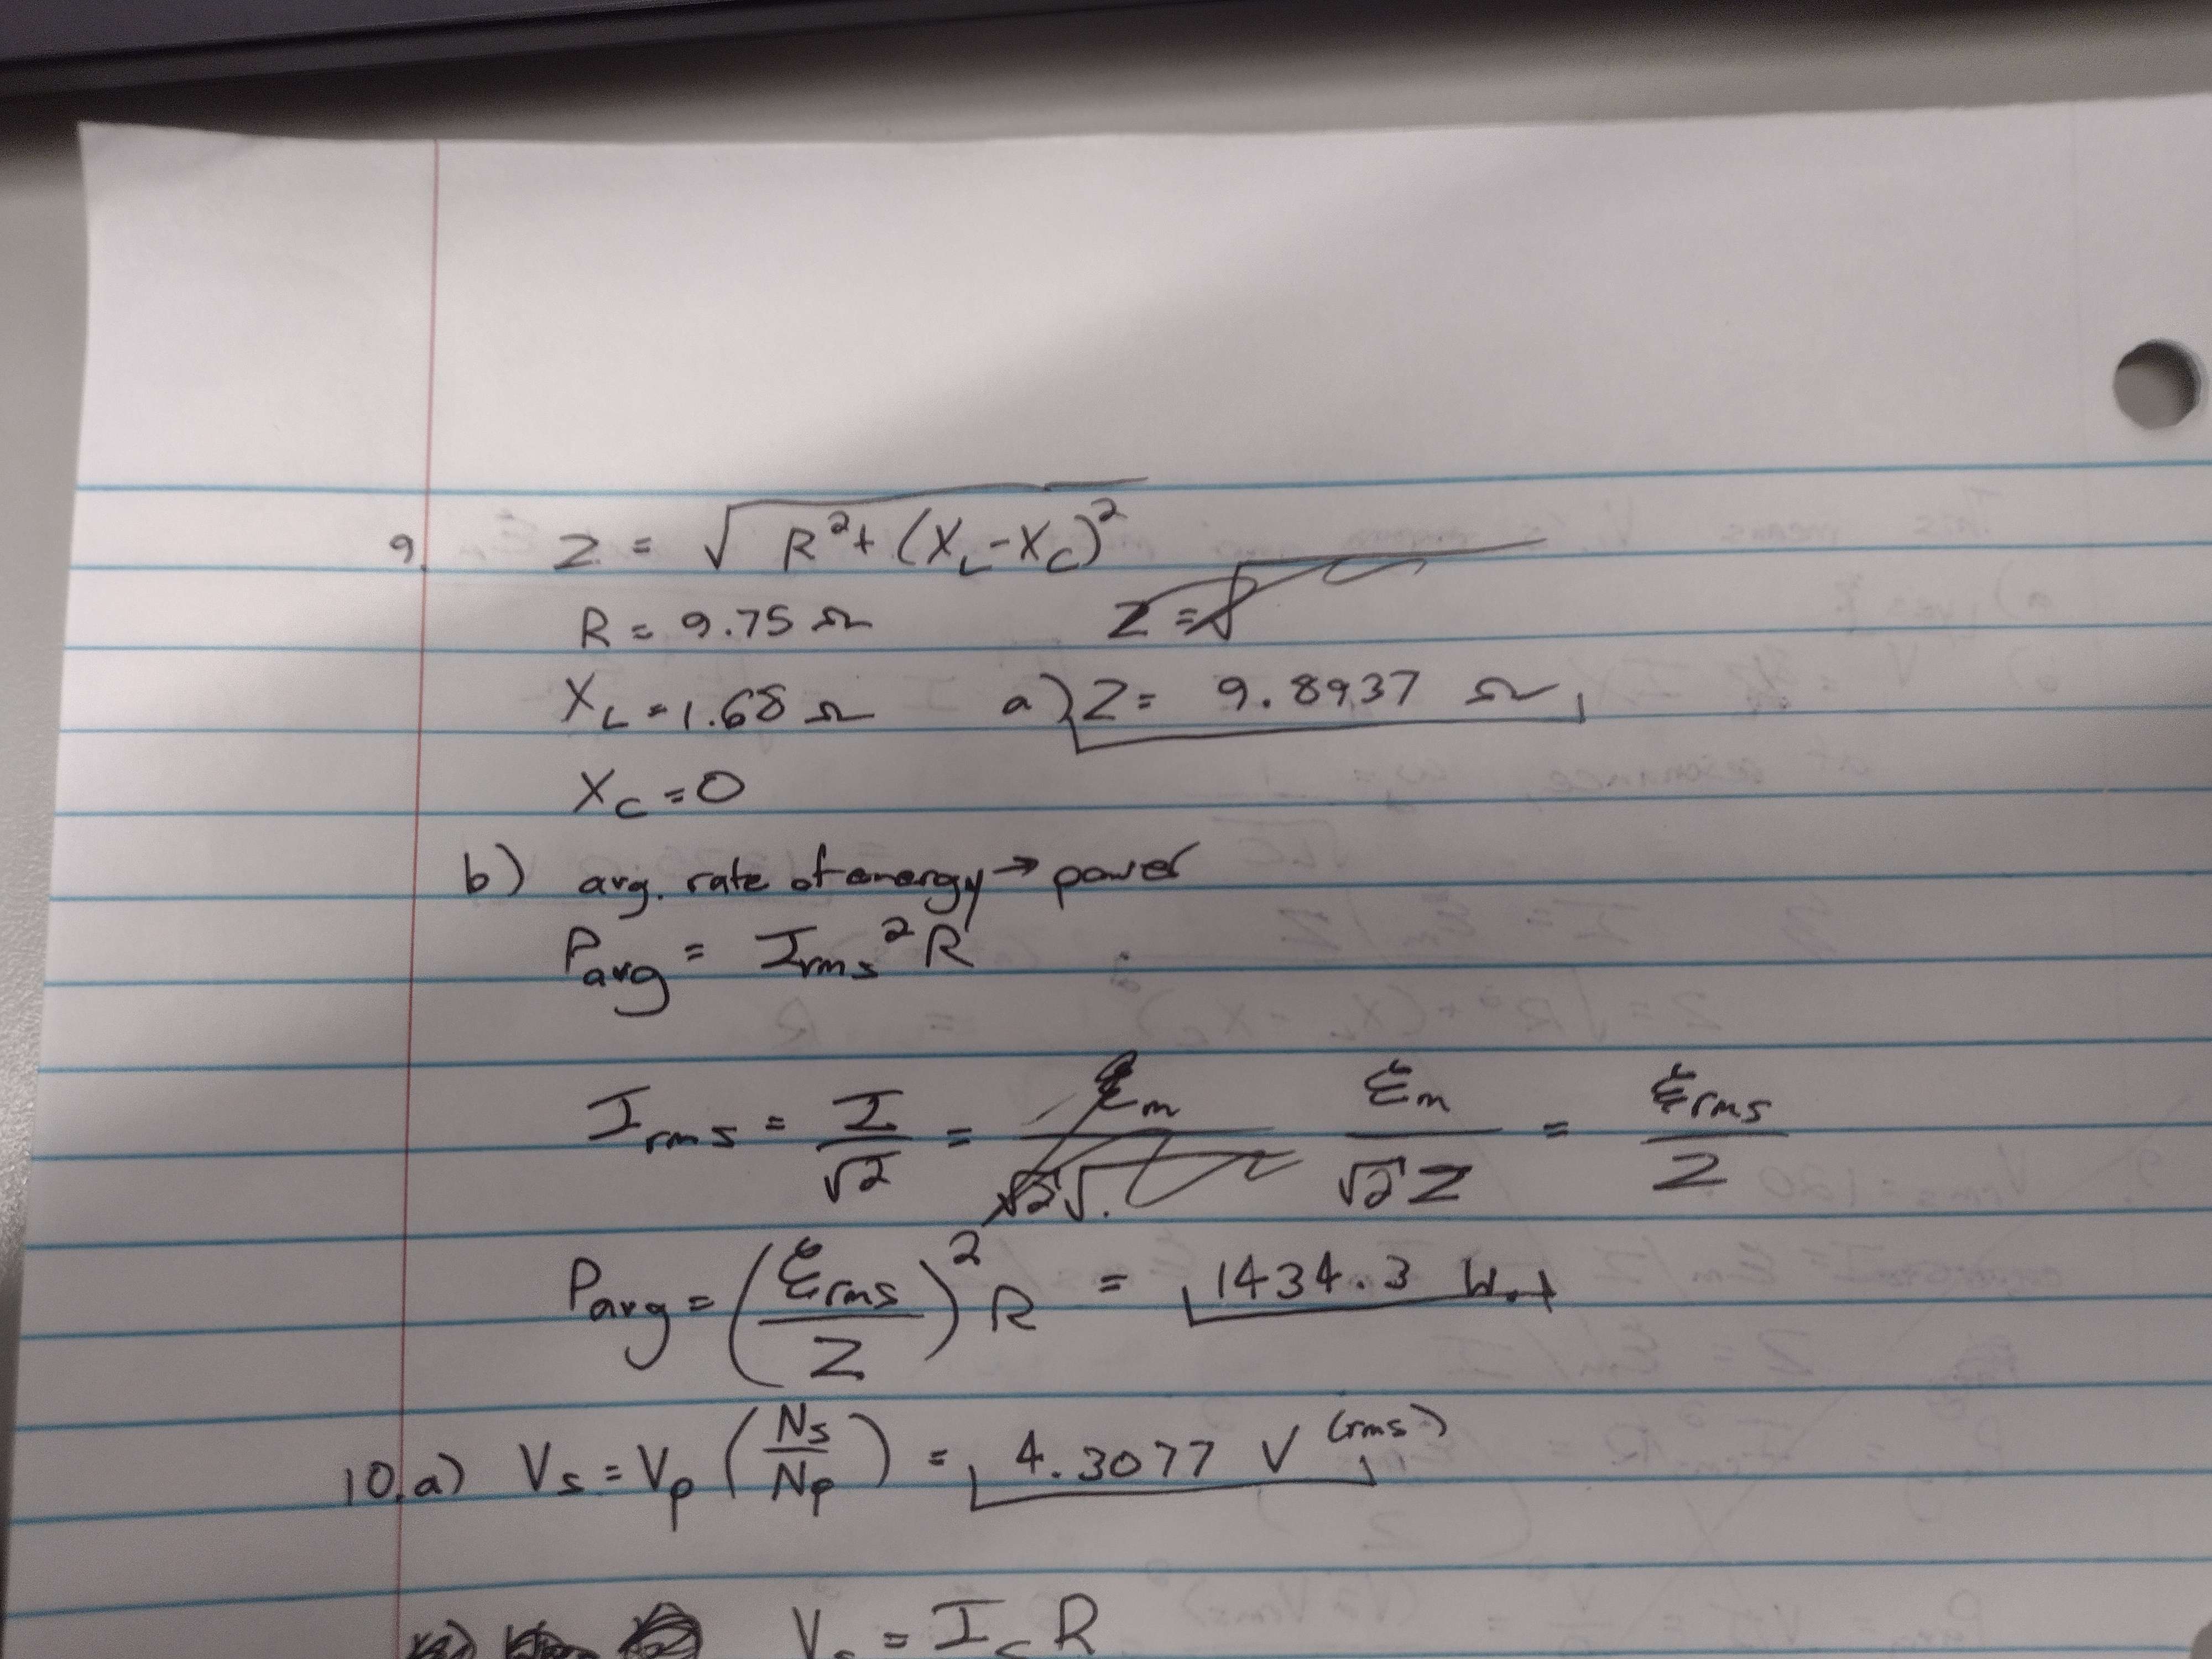 9. Z = √R²+(X_L-X_C)²
R = 9.75 Ω Z = √
X_L = 1.68 Ω a) Z = 9.8937 Ω
X_C = 0
b) avg. rate of energy → power
P_avg = I_rms² R
I_rms = I/√2 = ℰ_m/(√2 Z) = ℰ_rms/Z
P_avg = (ℰ_rms/Z)² R = 1434.3 W.
10. a) V_s = V_p (N_s/N_p) = 4.3077 V (rms)
V_s = I_s R